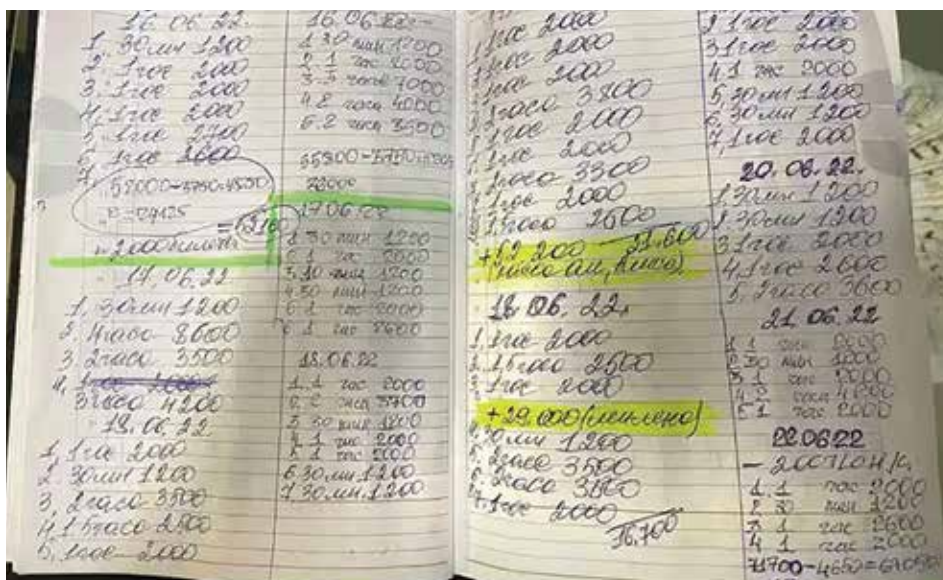 16.06.22.
1. 30 мин 1200
2. 1 час 2000
3. 1 час 2000
4. 1 час 2000
5. 1 час 2700
6. 1 час 2600
7.
2000
17.06.22
1. 30 мин 1200
2. 4 часа 8600
3. 2 часа 3500
4.
3 часа 4200
18.06.22
1, 1 час 2000
2. 30 мин 1200
3, 2 часа 3500
4. 1.5 часа 2500
5, 1 час 2000
16.06.22
1 30 мин 1200
2. 1 час 2000
3. 3 часа 7000
4. 2 часа 4000
5. 2 часа 3500
17.06.22
1 30 мин 1200
2 1 час 2000
3. 30 мин 1200
4. 30 мин 1200
5 1 час 2000
6 1 час 2600
18.06.22
1. 1 час 2000
2 2 часа 3700
3 30 мин 1200
4 1 час 2000
5 1 час 2000
6. 30 мин 1200
7. 30 мин. 1200
1 час 2000
1 час 2000
1 час 2000
2 часа 3800
1 час 2000
1 час 2000
2 часа 3300
1 час 2000
1.5 часа 2500
21.600
+52 200
18.06.22.
1, 1 час 2000
2, 1,5 часа 2500
3, 1 час 2000
+29.000
4, 30 мин 1200
5, 2 часа 3500
6, 2 часа 3500
7. 1 час 2000
16.700
2 1 час 2000
3 1 час 2000
4. 1 час 2000
5, 30 мин 1200
6, 30 мин 1200
7, 1 час 2000
20.06.22.
1. 30 мин 1200
2. 30 мин 1200
3 1 час 2000
4, 1 час 2600
5. 2 часа 3600
21 06.22
1 1 час 2000
2 30 мин 1200
3 1 час 2000
4 2 часа 4000
5 1 час 2000
22.06.22
1. 1 час 2000
2 30 мин 1200
3 1 час 2600
4 1 час 2000